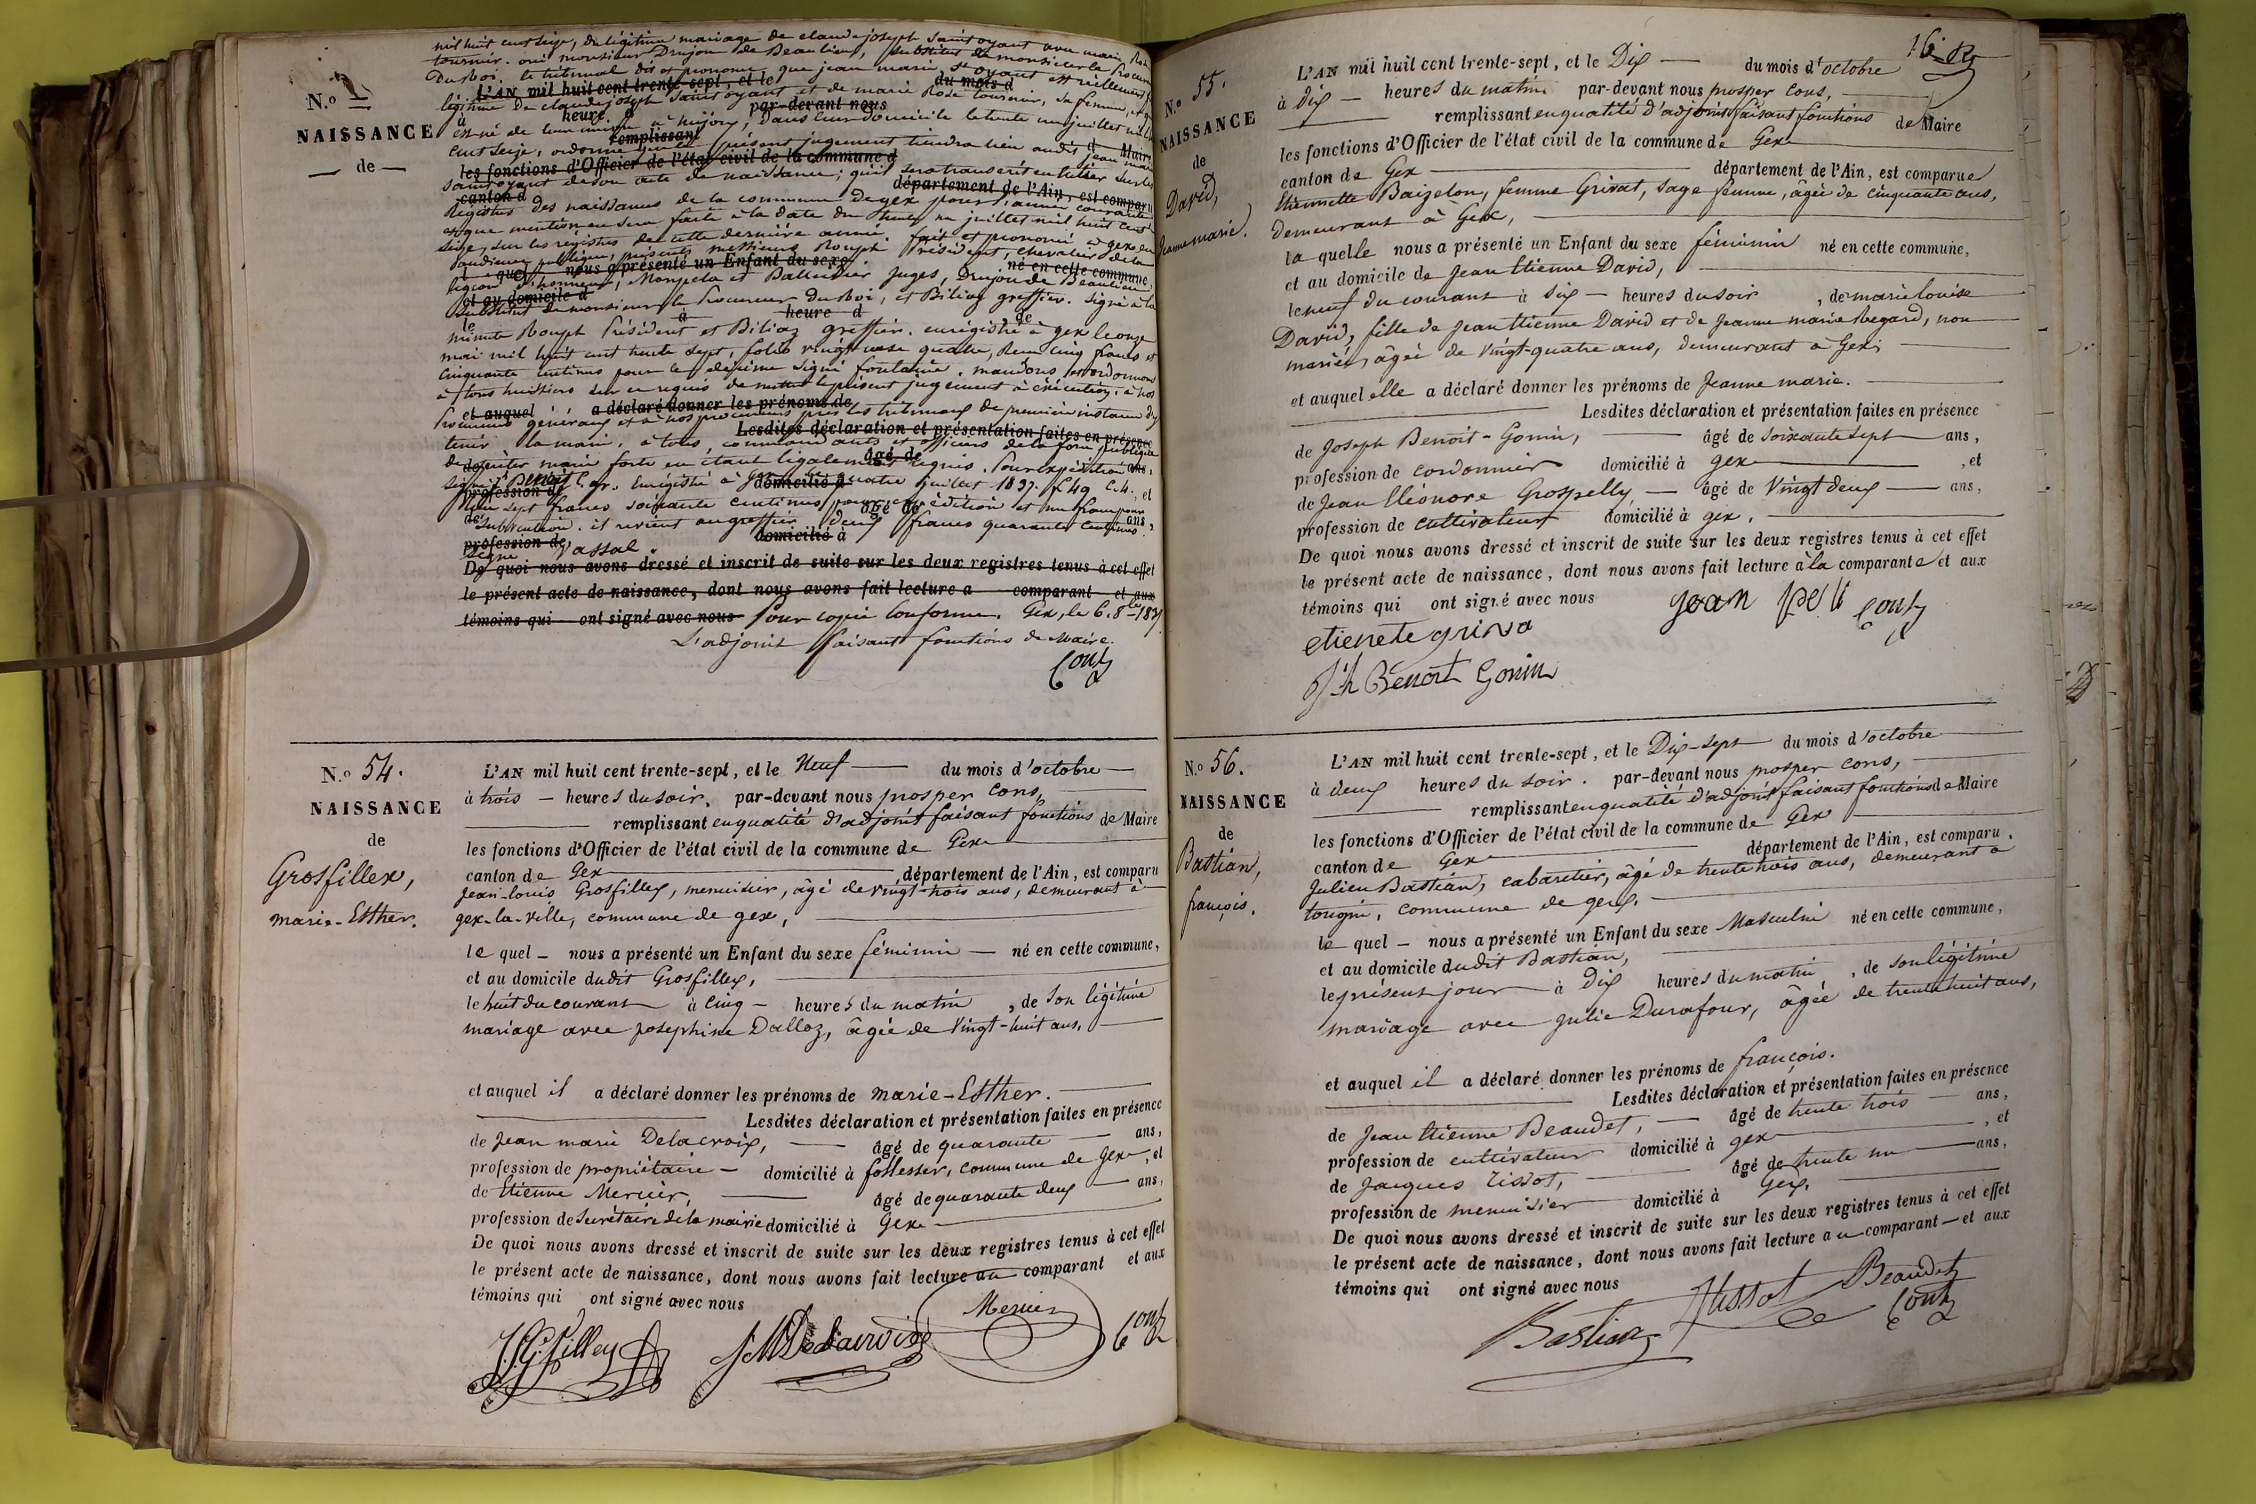 mil huit cent seize, du légitime mariage de claude joseph Saint oyant avec marie Rose
tournier. oui monsieur Drujon de Beaulieu, substitut de monsieur le Procureur
du Roi. le tribunal dit et prononce que jean marie St oyant est réellement fils
L'AN mil huit cent trente-sept, et le du mois d
légitime de claude joseph Saint oyant et de marie Rose tournier, sa femme, et qu'il
à heure par-devant nous
est né de leur union à mijoux, dans leur domicile le trente un juillet mil huit
remplissant d Maire
cent seize, ordonne que le présent jugement tiendra lieu audit jean marie
les fonctions d'Officier de l'état civil de la commune d
saint oyant de son acte de naissance; qu'il sera transcrit en entier sur les
canton d département de l'Ain, est comparu
Registres des naissances de la commune de gex pour l'année courante
et que mention en sera faite à la date du trente un juillet mil huit cent
seize, sur les régistres de cette dernière année. fait et prononcé à gex en
l'audience publique, présents messieurs Rouph Président, chevalier de la
l quel nous a présenté un Enfant du sexe né en cette commune,
légion d'honneur, Monpela et Balleidier juges, Drujon de Beaulieu
et au domicile d
substitut de monsieur le Procureur du Roi, et Biliaz greffier. Signé à la
le à heure d de
minute Rouph Président et Biliaz greffier. enrégistré à gex le onze
mai mil huit cent trente sept, folio vingt case quatre, Reçu cinq francs et
cinquante centimes pour le décime signé fontaine. mandons et ordonnons
à tous huissiers sur ce requis de mettre le présent jugement à exécution, à nos
et auquel a déclaré donner les prénoms de
Procureurs généraux et à nos procureurs près les tribunaux de première instance d'y
Lesdites déclaration et présentation faites en présence
tenir la main, à tous commandants et officiers de la force publique
de âgé de ans,
de prêter main forte en étant légalement requis. Pour expédition
profession de domicilié à , et
signé Benoit C. gr. Enrégistré à Gex le quatre juillet 1837. f. 49 C. 4.
de âgé de ans,
Reçu sept francs soixante centimes pour expédition et un franc pour
subvention. il revient au greffier deux francs quarante centimes.
profession de domicilié à
signé Vassal.
De quoi nous avons dressé et inscrit de suite sur les deux registres tenus à cet effet
le présent acte de naissance, dont nous avons fait lecture a comparant et aux
témoins qui ont signé avec nous Pour copie conforme. Gex, le 6. 8bre 1837.
L'adjoint faisant fonctions de Maire.
Cons
N.o
NAISSANCE
de
N.o 54.
NAISSANCE
de
Grosfillex,
marie-Esther.
L'AN mil huit cent trente-sept, et le Neuf du mois d'octobre
à trois heures du soir, par-devant nous prosper Cons,
remplissant en qualité d'adjoint faisant fonctions de Maire
les fonctions d'Officier de l'état civil de la commune de Gex
canton de Gex département de l'Ain, est comparu
jean-louis Grosfillex, menuisier, âgé de vingt-trois ans, demeurant à
gex-la-ville, commune de gex,
le quel nous a présenté un Enfant du sexe féminin né en cette commune,
et au domicile dudit Grosfillex,
le huit du courant à Cinq heures du matin, de son légitime
mariage avec josephine Dalloz, âgée de vingt-huit ans,
et auquel il a déclaré donner les prénoms de marie-Esther.
Lesdites déclaration et présentation faites en présence
de jean marie Delacroix, âgé de quarante ans,
profession de propriétaire domicilié à fossesser, commune de Gex, et
de Etienne Mercier, âgé de quarante deux ans,
profession de Secrétaire de la mairie domicilié à Gex
De quoi nous avons dressé et inscrit de suite sur les deux registres tenus à cet effet
le présent acte de naissance, dont nous avons fait lecture au comparant et aux
témoins qui ont signé avec nous
Mercier
J L Gfilley J M Delacroix Cons
16 R
N.o 55.
NAISSANCE
de
David,
Jeanne marie.
L'AN mil huit cent trente-sept, et le Dix du mois d'octobre
à dix heures du matin par-devant nous prosper Cons,
remplissant en qualité d'adjoint faisant fonctions de Maire
les fonctions d'Officier de l'état civil de la commune de Gex
canton de Gex département de l'Ain, est comparue
Etiennette Baizelon, femme Grivat, sage femme, âgée de cinquante ans,
demeurant à Gex,
la quelle nous a présenté un Enfant du sexe féminin né en cette commune,
et au domicile de Jean Etienne David,
le neuf du courant à six heures du soir, de marie louise
David, fille de Jean Etienne David et de Jeanne marie Regard, non
mariée, âgée de vingt-quatre ans, demeurant à Gex;
et auquel elle a déclaré donner les prénoms de Jeanne marie.
Lesdites déclaration et présentation faites en présence
de Joseph Benoit-Gonin, âgé de soixante sept ans,
profession de cordonnier domicilié à gex, et
de Jean Eléonore Grospelly, âgé de vingt deux ans,
profession de cultivateur domicilié à gex.
De quoi nous avons dressé et inscrit de suite sur les deux registres tenus à cet effet
le présent acte de naissance, dont nous avons fait lecture à la comparante et aux
témoins qui ont signé avec nous jean peli Cons
etienete griva
Jh Benoit Gonin
N.o 56.
NAISSANCE
de
Bastian,
françois.
L'AN mil huit cent trente-sept, et le Dix-sept du mois d'octobre
à deux heures du soir. par-devant nous prosper Cons,
remplissant en qualité d'adjoint faisant fonctions de Maire
les fonctions d'Officier de l'état civil de la commune de Gex
canton de Gex département de l'Ain, est comparu.
Julien Bastian, cabaretier, âgé de trente trois ans, demeurant à
tougin, commune de gex,
le quel nous a présenté un Enfant du sexe Masculin né en cette commune,
et au domicile dudit Bastian,
le présent jour à Dix heures du matin, de son légitime
mariage avec julie Durafour, âgée de trente huit ans,
et auquel il a déclaré donner les prénoms de françois.
Lesdites déclaration et présentation faites en présence
de Jean Etienne Beaudet, âgé de trente trois ans,
profession de cultivateur domicilié à gex, et
de Jacques Tissot, âgé de trente un ans,
profession de menuisier domicilié à Gex,
De quoi nous avons dressé et inscrit de suite sur les deux registres tenus à cet effet
le présent acte de naissance, dont nous avons fait lecture au comparant et aux
témoins qui ont signé avec nous
Bastian Tissot Beaudet Cons